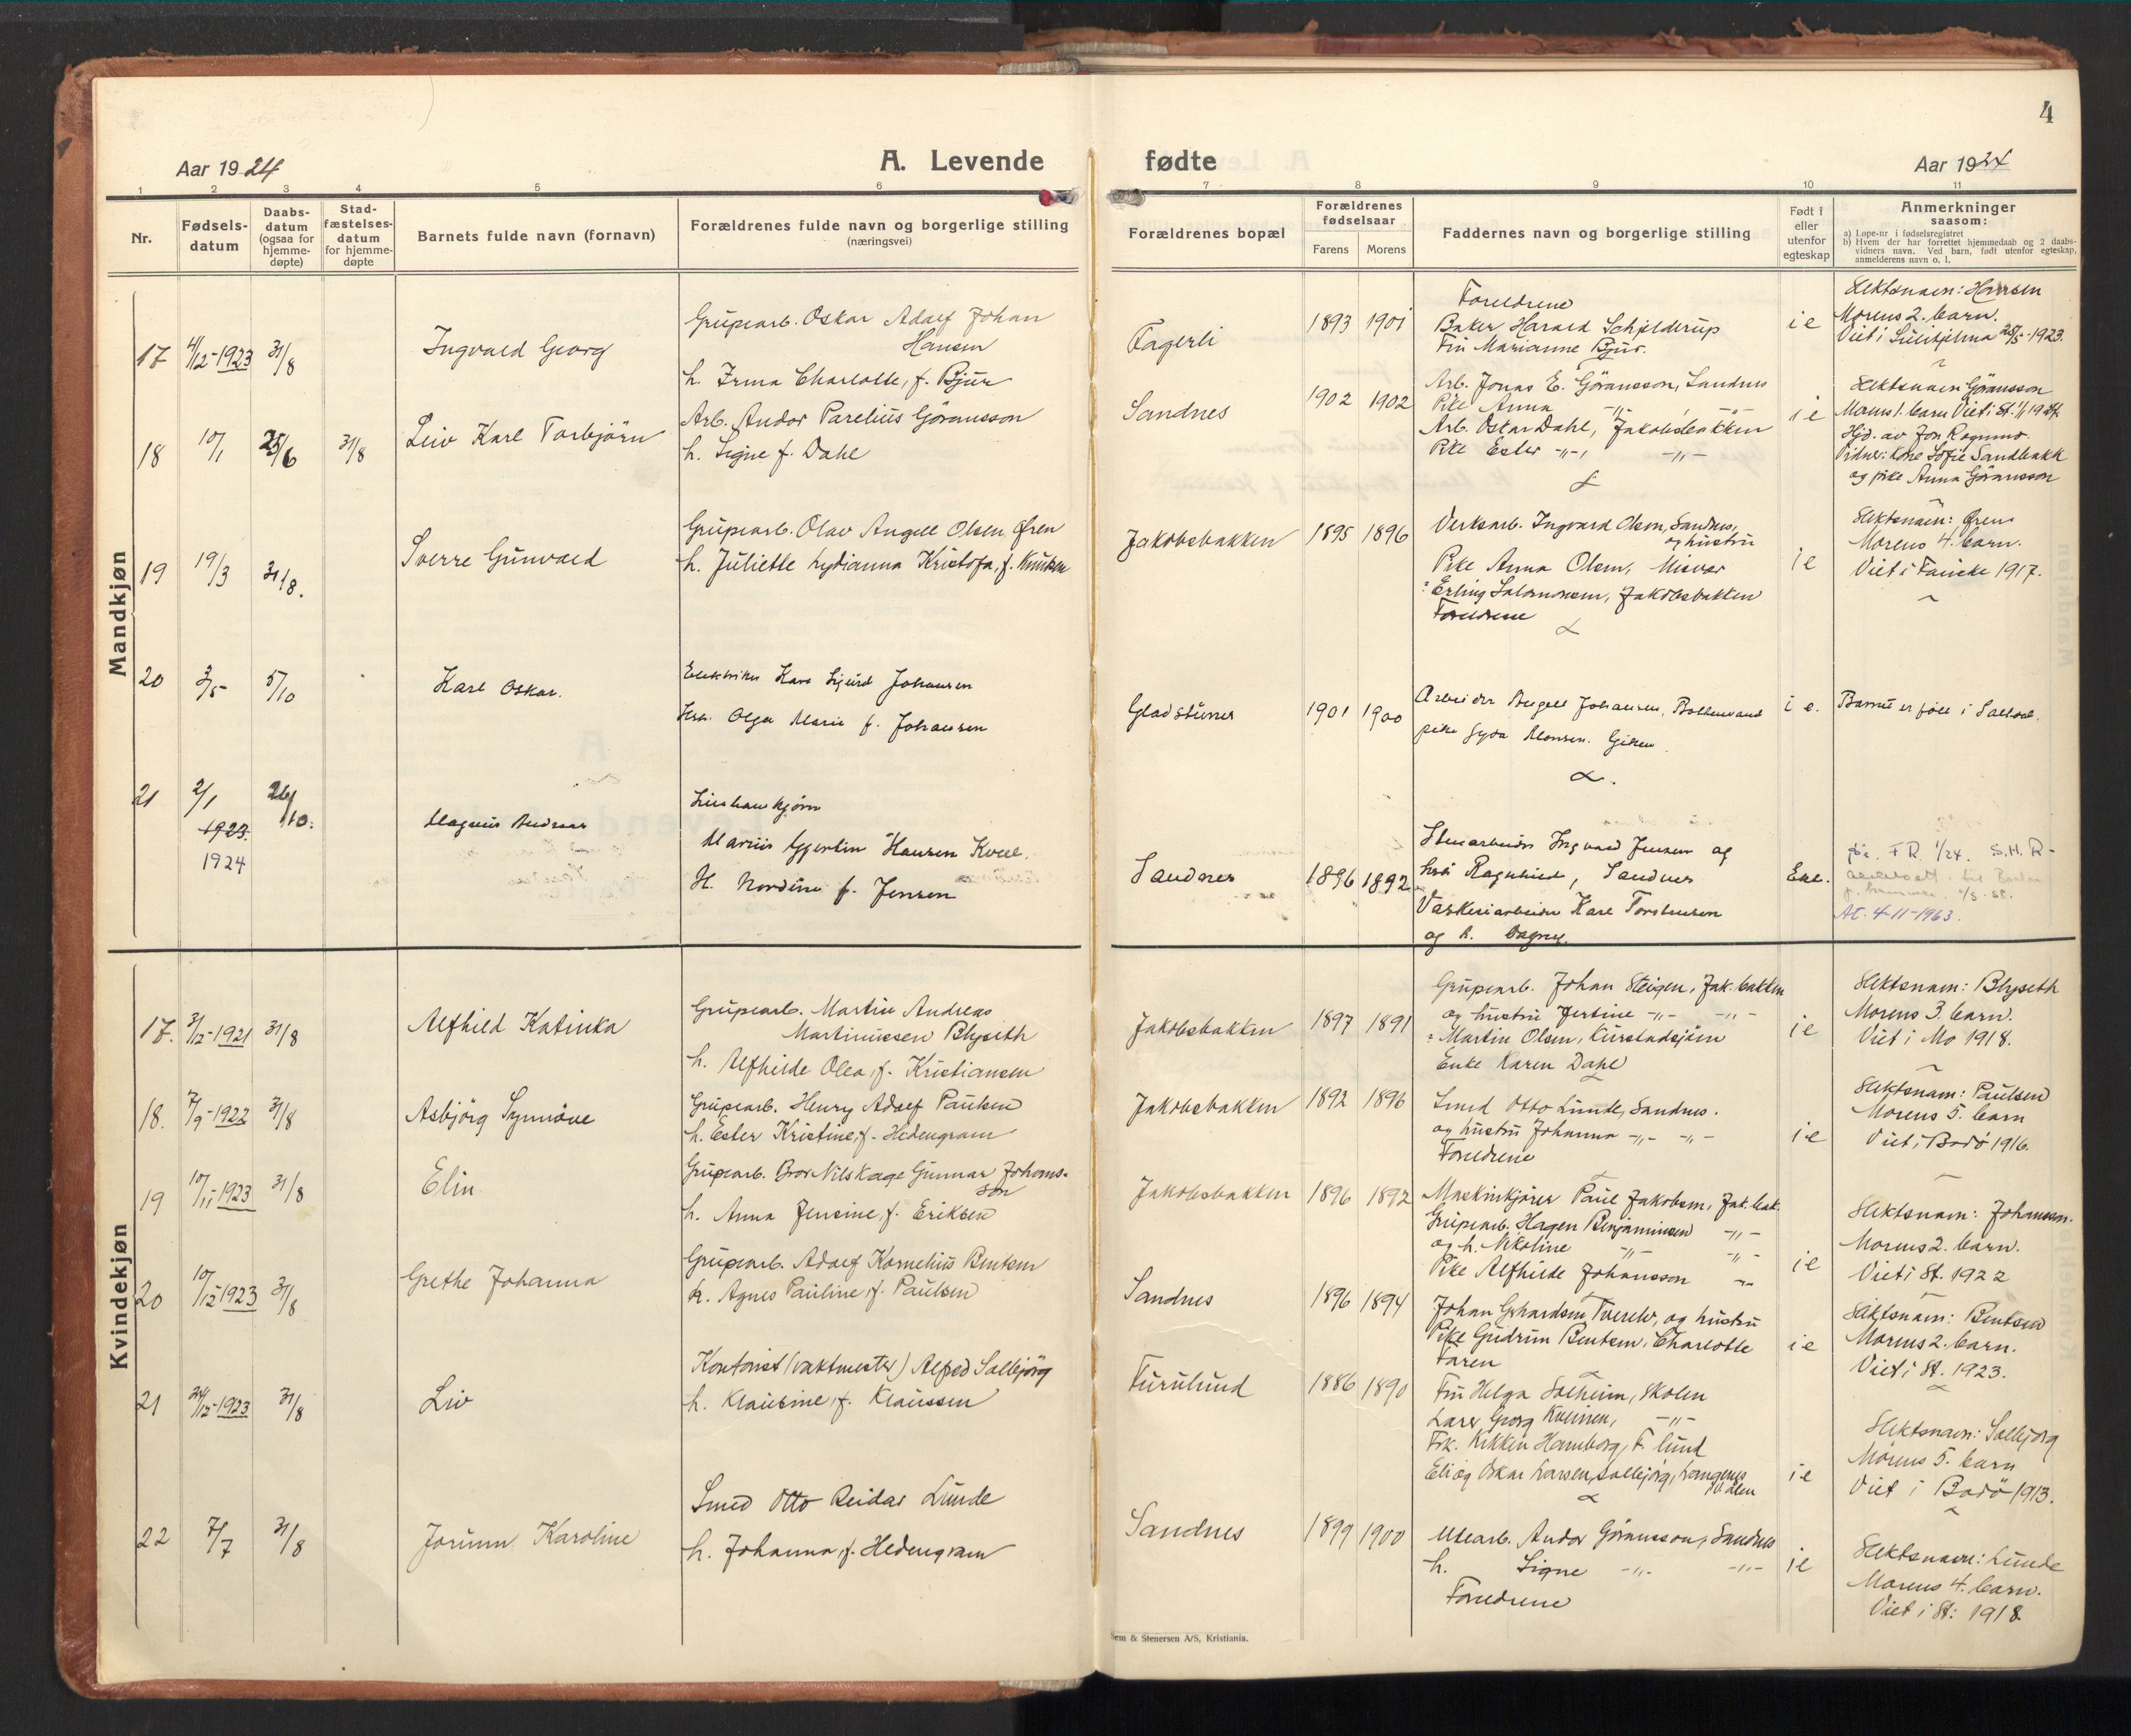 4
Aar 1924
A. Levende
1 2 3 4 5 6
Nr.
Fødsels-
datum
Daabs-
datum
(ogsaa for
hjemme-
døpte)
Stad-
fæstelses-
datum
for hjemme-
døpte
Barnets fulde navn (fornavn)
Forældrenes fulde navn og borgerlige stilling
(næringsvei)
Mandkjøn
17 4/12-1923 31/8
Ingvald Georg
Grubearb. Oskar Adolf Johan
Hansen
h. Irma Charlotte, f. Bjur
18 10/1 25/6 31/8
Leiv Karl Torbjörn
Arb. Andor Parelius Göransson
h. Signe f. Dahl
19 19/3 31/8.
Sverre Gunvald
Grubearb. Olav Angell Olsen Øren
h. Juliette Lydianna Kristofa, f. Knutsen
20 3/5 5/10
Karl Oskar.
Elektriker Karl Sigurd Johansen
Hst. Olga Marie f. Johansen
21 2/1 26/10.
1923.
1924
Magnus Andreas
Marius Hansen Kvæl.
H. Nordine f. Jensen
Kvindekjøn
17. 3/12-1921 31/8
Alfhild Katinka
Grubearb. Martin Andreas
Martinussen Blyseth
h. Alfhilde Olea, f. Kristiansen
18. 7/9-1922 31/8
Asbjörg Synnöve
Grubearb. Henry Adolf Paulsen
h. Ester Kristine, f. Hedengram
19 10/11-1923 31/8
Elin
Grubearb. Bror Nils Kage Gunnar Johans-
son
h. Anna Jensine, f. Eriksen
20 10/12-1923 31/8
Grethe Johanna
Grubearb. Adolf Kornelius Bentsen
h. Agnes Pauline, f. Paulsen
21 24/12-1923 31/8
Liv
Kontorist (vaktmester) Alfred Solbjörg
h. Klausine, f. Klaussen
22 7/7 31/8
Jorunn Karoline
Smed Otto Reidar Lunde
h. Johanna, f. Hedengram
fødte
Aar 1924
7 8 9 10 11
Forældrenes bopæl
Forældrenes
fødselsaar
Farens Morens
Faddernes navn og borgerlige stilling
Født i
eller
utenfor
egteskap
Anmerkninger
saasom:
a) Løpe-nr i fødselsregistret
b) Hvem der har forrettet hjemmedaab og 2 daabs-
vidners navn. Ved barn, født utenfor egteskap,
anmelderens navn o. l.
Fagerli
1893 1901
Foreldrene
Baker Harald Schjelderup
Fru Marianne Bjur.
i e
Slektsnavn: Hansen
Morens 2. barn.
Viet i Sulitjelma 25/5-1923.
Sandnes
1902 1902
Arb. Jonas E. Göransson, Sandnes
Pike Anna -"- , -"-
Arb. Oskar Dahl, Jakobsbakken
Pike Ester -"-, -"-
i e
Slektsnavn Göransson
Morens 1. barn Viet i St. 1/1 1924.
Hjd. av Jon Rognmo.
Vidner: Lone Sofie Sandbakk
og pike Anna Göransson
Jakobsbakken
1895 1896
Verksarb. Ingvard Olsen, Sandnes,
og hustru
Pike Anna Olsen, Misvær
" Erling Salomonsen, Jakobsbakken
Foreldrene
i e
Slektsnavn: Øren
Morens 4. barn.
Viet i Fauske 1917.
Gladstuner
1901 1900
Arbeider Johansen,
pike Gyda Monsen. Giken.
i e.
Barnet er født i Saltdal.
Sandnes
1896 1892
Stenarbeider Ingvald Jensen og
hst. Ragnhild, Sandnes
Vaskeriarbeider Karl Torstensen
og h. Dagny.
Ekt.
F R. 1/24. S.H.R-
At. 4-11-1963.
Jakobsbakken
1897 1891
Grubearb. Johan Steigen, Jak.bakken
og hustru Jertine -"- -"-
" Martin Olsen, Furulidsjöen
Enke Karen Dahl
i e
Slektsnavn: Blyseth
Morens 3. barn.
Viet i Mo 1918.
Jakobsbakken
1892 1896
Smed Otto Lunde, Sandnes.
og hustru Johanna -"- -"-
Foreldrene
i e
Slektsnavn: Paulsen
Morens 5. barn
Viet i Bodö 1916.
Jakobsbakken
1896 1892
Maskinkjører Paul Jakobsen, Jak.bak.
Grubearb. Hagen Benjaminsen -"-
og h. Nikoline -"- -"-
Pike Alfhilde Johansson -"-
i e
Slektsnavn: Johansson.
Morens 2. barn.
Viet i St. 1922
Sandnes
1896 1894
Johan Gerhardsen Tverelv, og hustru
Pike Gudrun Bentsen, Charlotte
Faren
i e
Slektsnavn: Bentsen
Morens 2. barn.
Viet i St. 1923.
Furulund
1886 1890
Fru Helga Solheim, Skolen
Lærer Georg -"-
Frk. Kikken Hamborg, F. lund
Eli og Oskar Larsen, Solbjörg, Langenes
i e
Slektsnavn: Solbjörg
Morens 5. barn
Viet i Bodö 1913.
Sandnes
1899 1900
Utearb. Andor Göransson, Sandnes
h. Signe -"- -"-
Foreldrene
i e
Slektsnavn: Lunde
Morens 4. barn.
Viet i St: 1918.
Sem & Stenersen A/S, Kristiania.